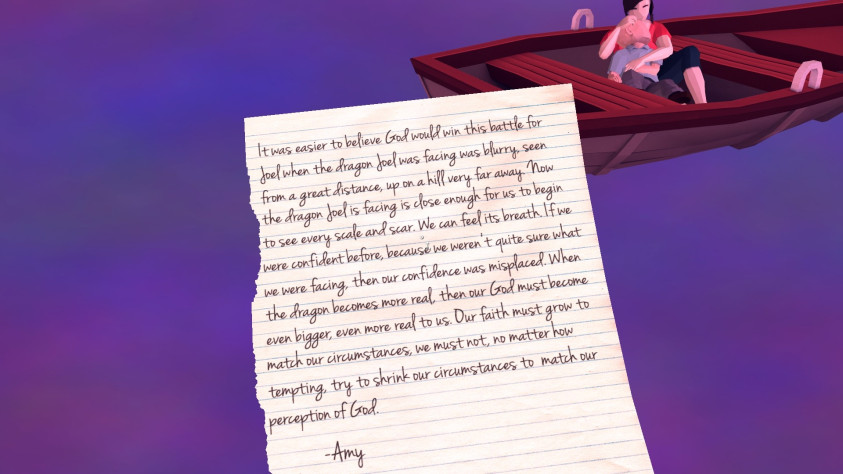 It was easier to believe God would win this battle for
Joel when the dragon Joel was facing was blurry, seen
from a great distance, up on a hill very far away. Now
the dragon Joel is facing is close enough for us to begin
to see every scale and scar. We can feel its breath. If we
were confident before, because we weren't quite sure what
we were facing, then our confidence was misplaced. When
the dragon becomes more real, then our God must become
even bigger, even more real to us. Our faith must grow to
match our circumstances, we must not, no matter how
tempting, try to shrink our circumstances to match our
perception of God.
-Amy